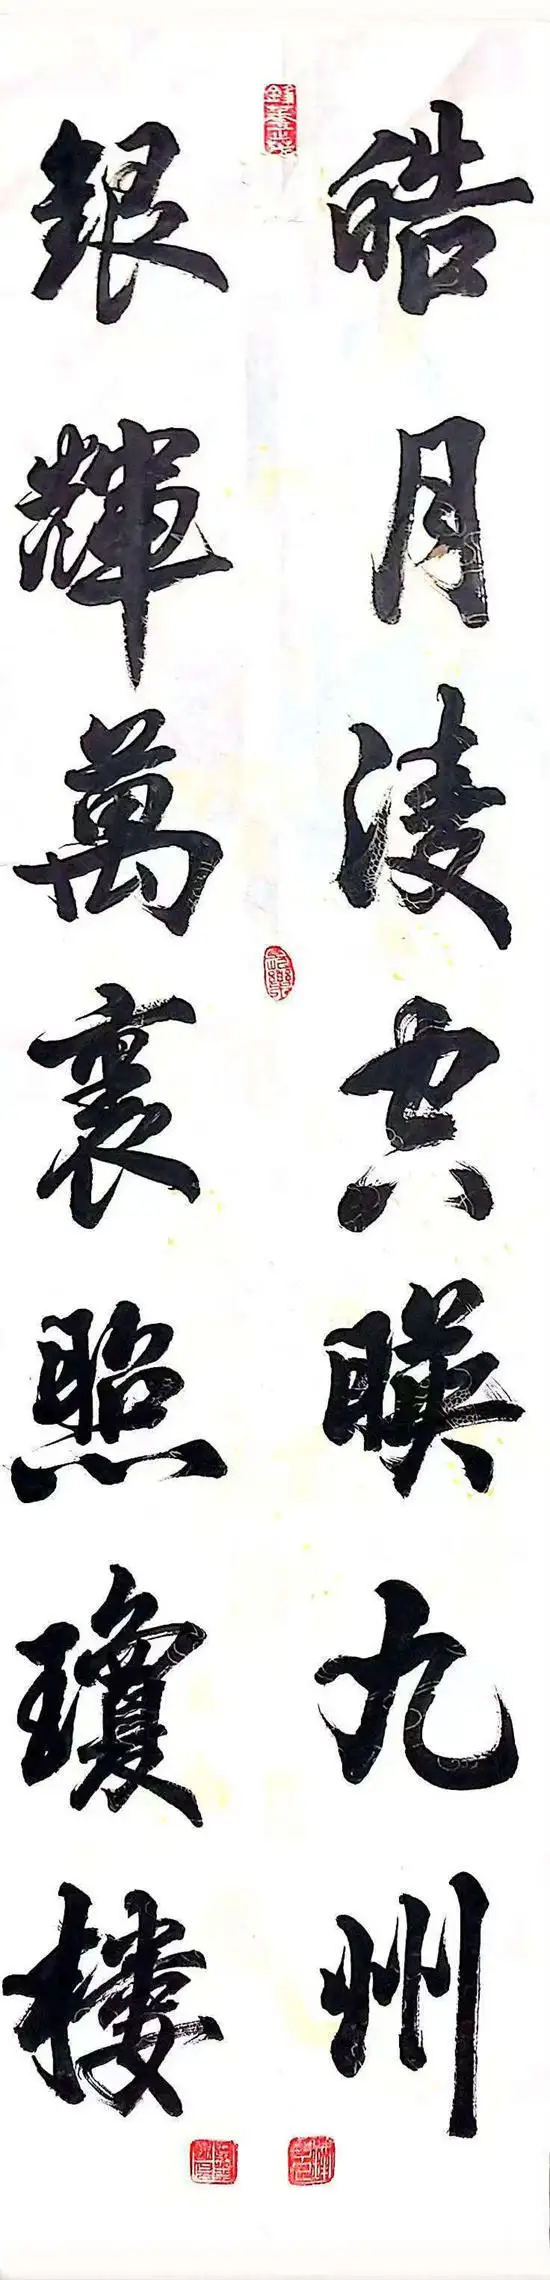 皓月凌空暎九州
銀輝萬裏照瓊樓